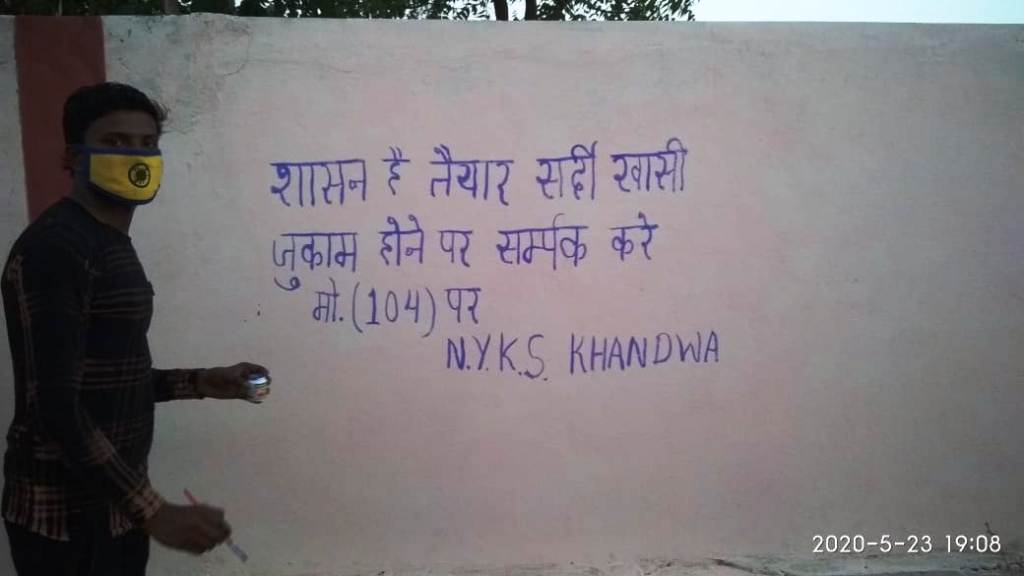 शासन है तैयार सर्दी खासी
जुकाम होने पर सर्म्पक करे
मो. (104) पर
N.Y.K.S. KHANDWA
2020-5-23 19:08